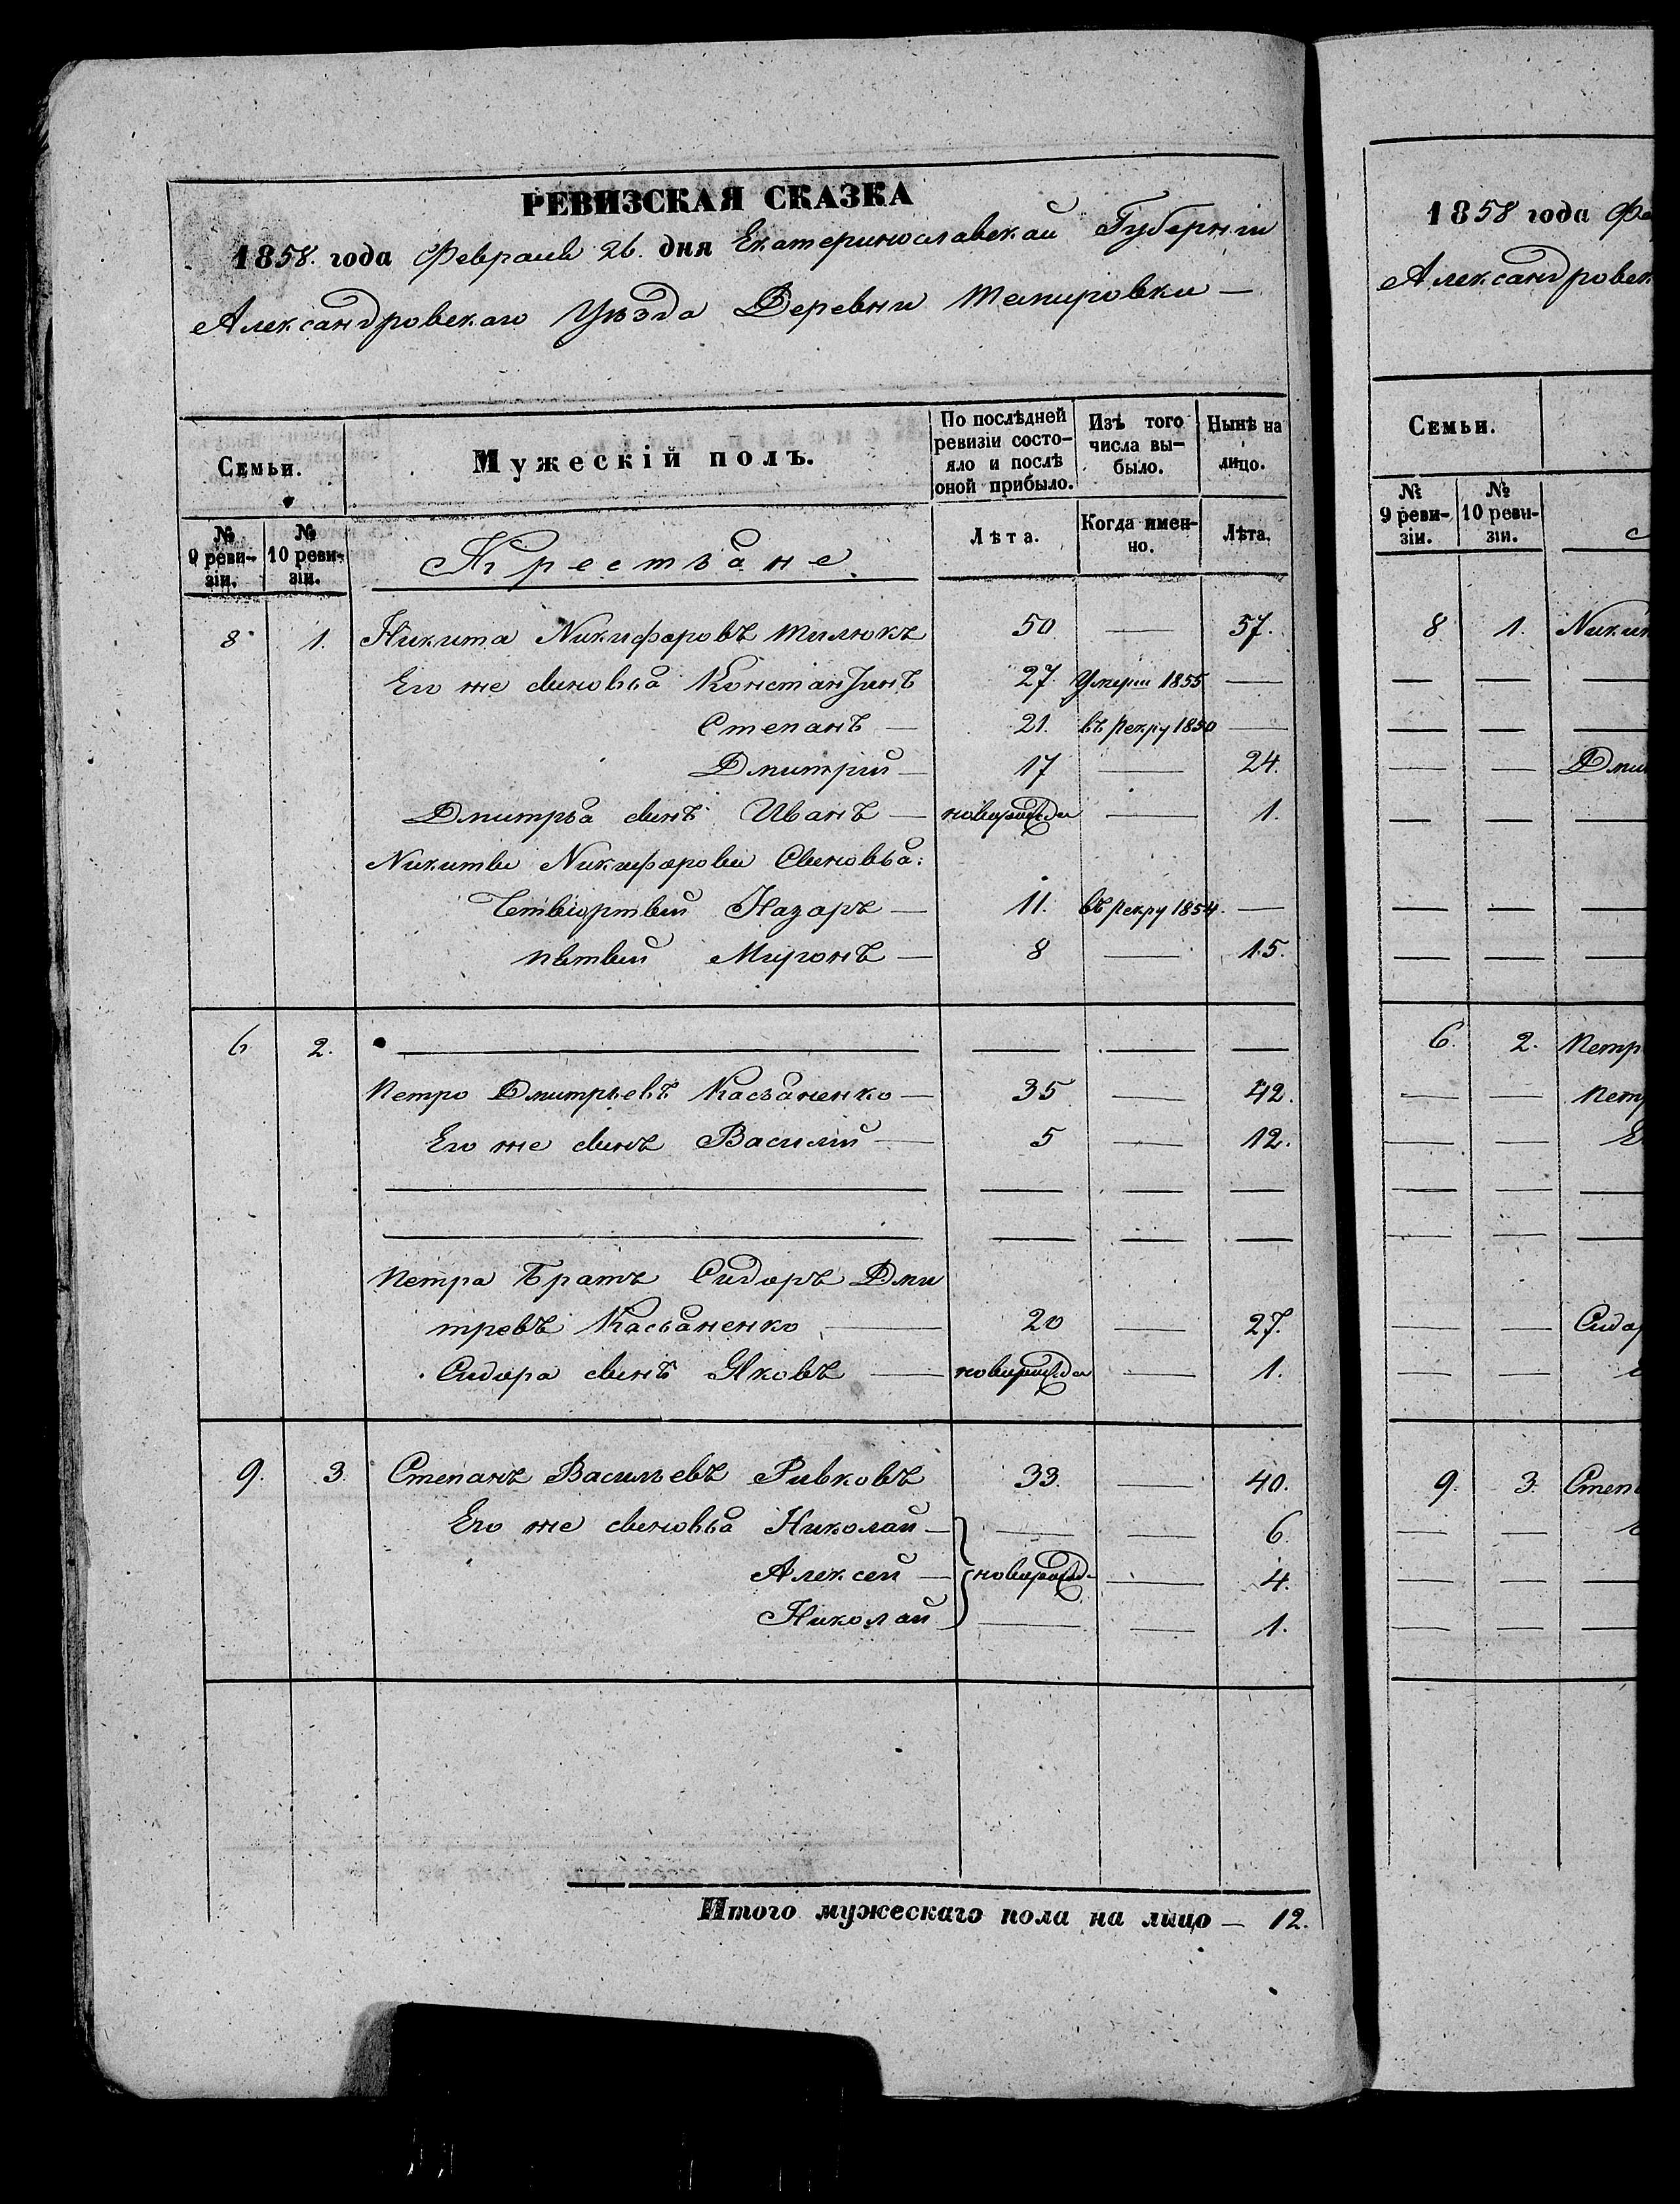 РЕВИЗСКАЯ СКАЗКА
1858. года Февраля 26. дня Екатеринославской Губерніи
Александровскаго Уѣзда Деревни
Семьи.
Мужескій полъ.
По послѣдней ревизіи состо-яло и послѣ оной прибыло.
Изъ того числа вы-было.
Нынѣ на лицо.
№ 9 реви-зіи.
№ 10 реви-зіи.
Крестьяне
Лѣта.
Когда имен-но.
Лѣта.
8 1. Никита Никифоровъ 50 — 57.
Его же сыновья Константинъ 27. умеръ 1855 —
Степанъ — 21. въ рекру 1850 —
Дмитрій — 17 — 24.
Дмитрья сынъ Иванъ — новорожде — 1.
Никиты Никифорова Сыновья:
Четвіортый Назаръ — 11. въ рекру 1854. —
пятый Миронъ — 8 — 15.
6 2. — — — —
Петро Дмитрьевъ Касьяненко — 35 — 42.
Его же сынъ Василий — 5 — 12.
— — — —
— — — —
Петра Братъ Сидоръ Дми
тревъ Касьяненко — 20 — 27.
Сидора сынъ Яковъ — новорожде — 1.
9. 3. Степанъ Васильевъ Рывковъ 33. — 40.
Его же сыновья Николай — — — 6
Алексей — новорожд — 4.
Николай — — 1.
Итого мужескаго пола на лицо — 12.
1858 года Фе
Александровск
Семьи.
№ 9 реви-зіи.
№ 10 реви-зіи.
8 1. Никит
— — —
— — —
— — Дми
— — —
— — —
— — —
6. 2. Петр
— — Петр
— —
— — —
— — —
— — Сидор
— —
9. 3. Степ
— —
— — —
— — —